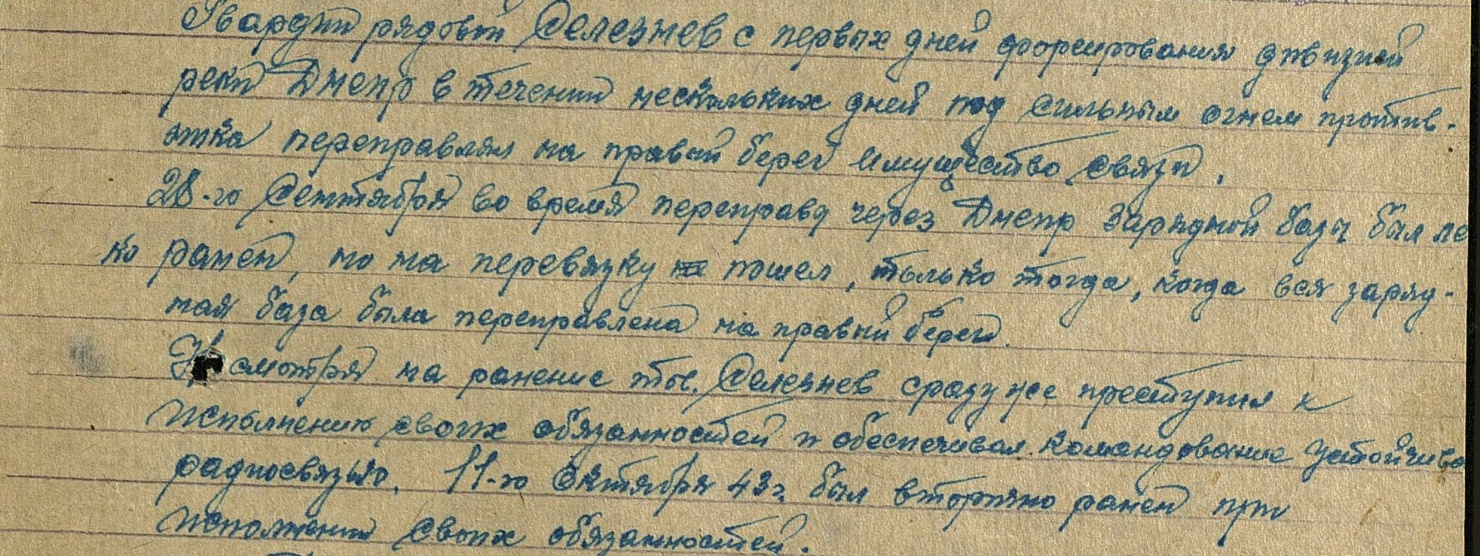 Гвардии рядовой Селезнев с первых дней форсирования дивизией
реки Днепр в течении нескольких дней под сильным огнем против-
ника переправлял на правый берег имущество связи.
28-го Сентября во время переправы через Днепр зарядной базы был ле
ко ранен, но на перевязку пошел, только тогда, когда вся заряд-
ная база была переправлена на правый берег.
Не смотря на ранение тов. Селезнев сразу же преступил к
исполнению своих обязанностей и обеспечивал командование устойчиво
радиосвязью. 11-го Октября 43 г. был вторично ранен при
исполнении своих обязанностей.